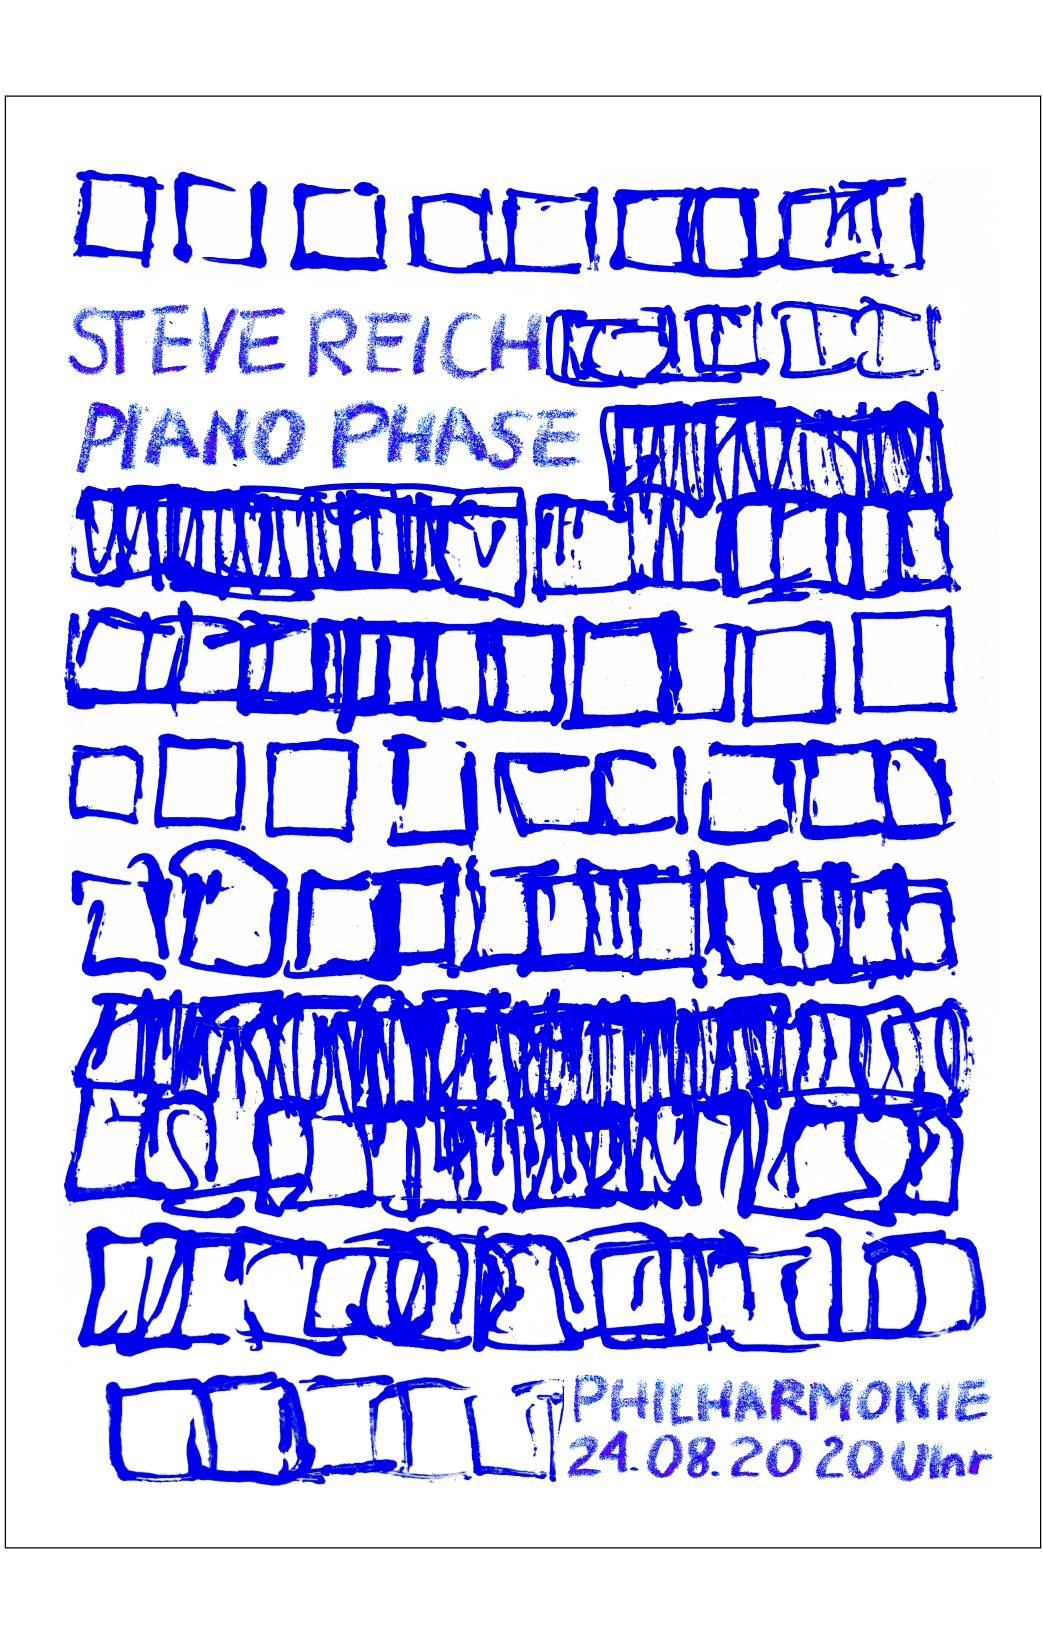 STEVE REICH
PIANO PHASE
PHILHARMONIE
24.08.20 20 Uhr